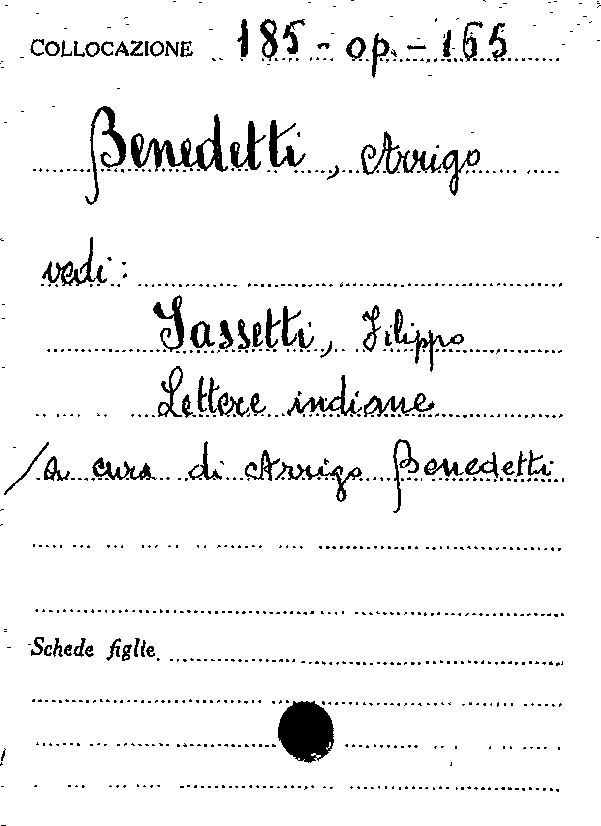 COLLOCAZIONE 185-op.-165
Benedetti, Arrigo
vedi:
Sassetti, Filippo
Lettere indiane
/a cura di Arrigo Benedetti
Schede figlie